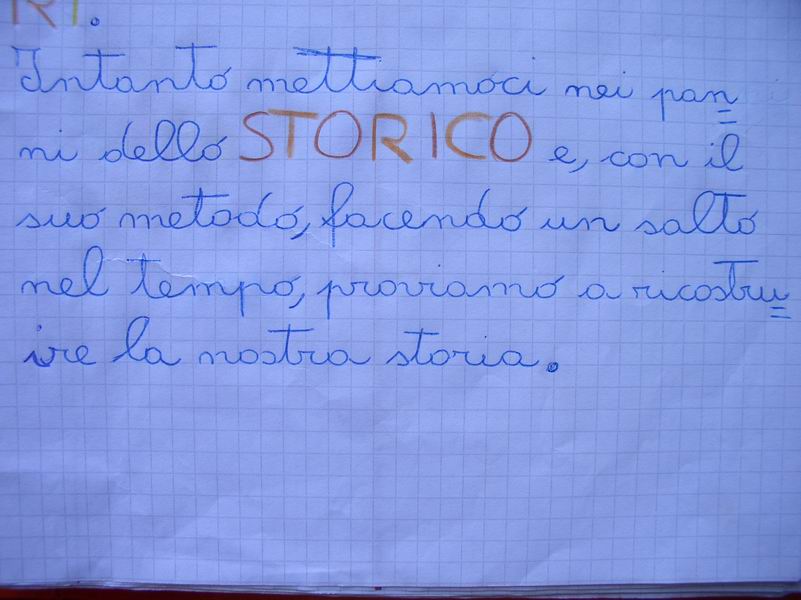 RI.
Intanto mettiamoci nei pan=
ni dello STORICO e, con il
suo metodo, facendo un salto
nel tempo, proviamo a ricostru=
ire la nostra storia.